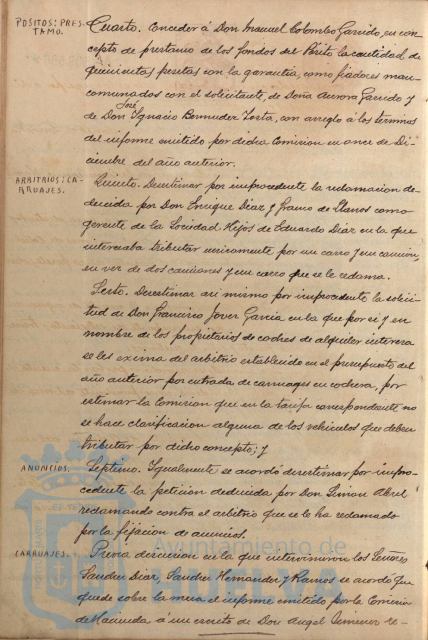 POSITOS: PRES-
TAMO.
Cuarto. Conceder á Don Manuel Colombo Garrido, en con-
cepto de prestamo de los fondos del Pósito la cantidad de
quinientas pesetas con la garantia, como fiadores man-
comunados con el solicitante, de Doña Aurora Garrido y
José
de Don Ignacio Bermudez Zorta, con arreglo á los terminos
del informe emitido por dicha Comision en once de Di-
ciembre del año anterior.
ARBITRIOS: CA-
RRUAJES.
Quinto. Desestimar por improcedente la reclamacion de-
ducida por Don Enrique Diaz y Franco de Llanos como
gerente de la Sociedad Hijos de Eduardo Diaz en la que
interesaba tributar unicamente por un carro y un camion,
en vez de dos camiones y un carro que se le reclama.
Sexto. Desestimar asi mismo por improcedente la solici-
tud de Don Francisco Jover Garcia en la que por si y en
nombre de los propietarios de coches de alquiler interesa
se les exima del arbitrio establecido en el presupuesto del
año anterior por entrada de carruages en cochera, por
estimar la Comision que en la tarifa correspondiente no
se hace clasificacion alguna de los vehiculos que deben
tributar por dicho concepto; y
ANUNCIOS.
Septimo. Igualmente se acordó desestimar por impro-
cedente la peticion deducida por Don Simon Abril
reclamando contra el arbitrio que se le ha reclamado
por la fijacion de anuncios.
CARRUAJES.
Previa discusion en la que intervinieron los Señores
Sanchez Diaz, Sanchez Hernandez y Ramos se acordo que
quede sobre la mesa el informe emitido por la Comision
de Hacienda á un escrito de Don Angel Jimenez re-
Ayuntamiento de